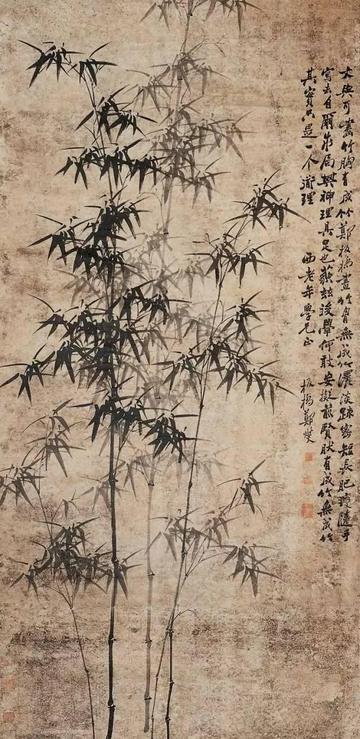 文與可畫竹胸有成竹鄭板橋畫竹胸無成竹濃淡疎密短長肥瘦隨手
寫去自爾成局其神理具足也藐茲後學何敢妄擬前賢然有成竹無成竹
其實只是一个道理
西老年學兄正
板橋鄭燮